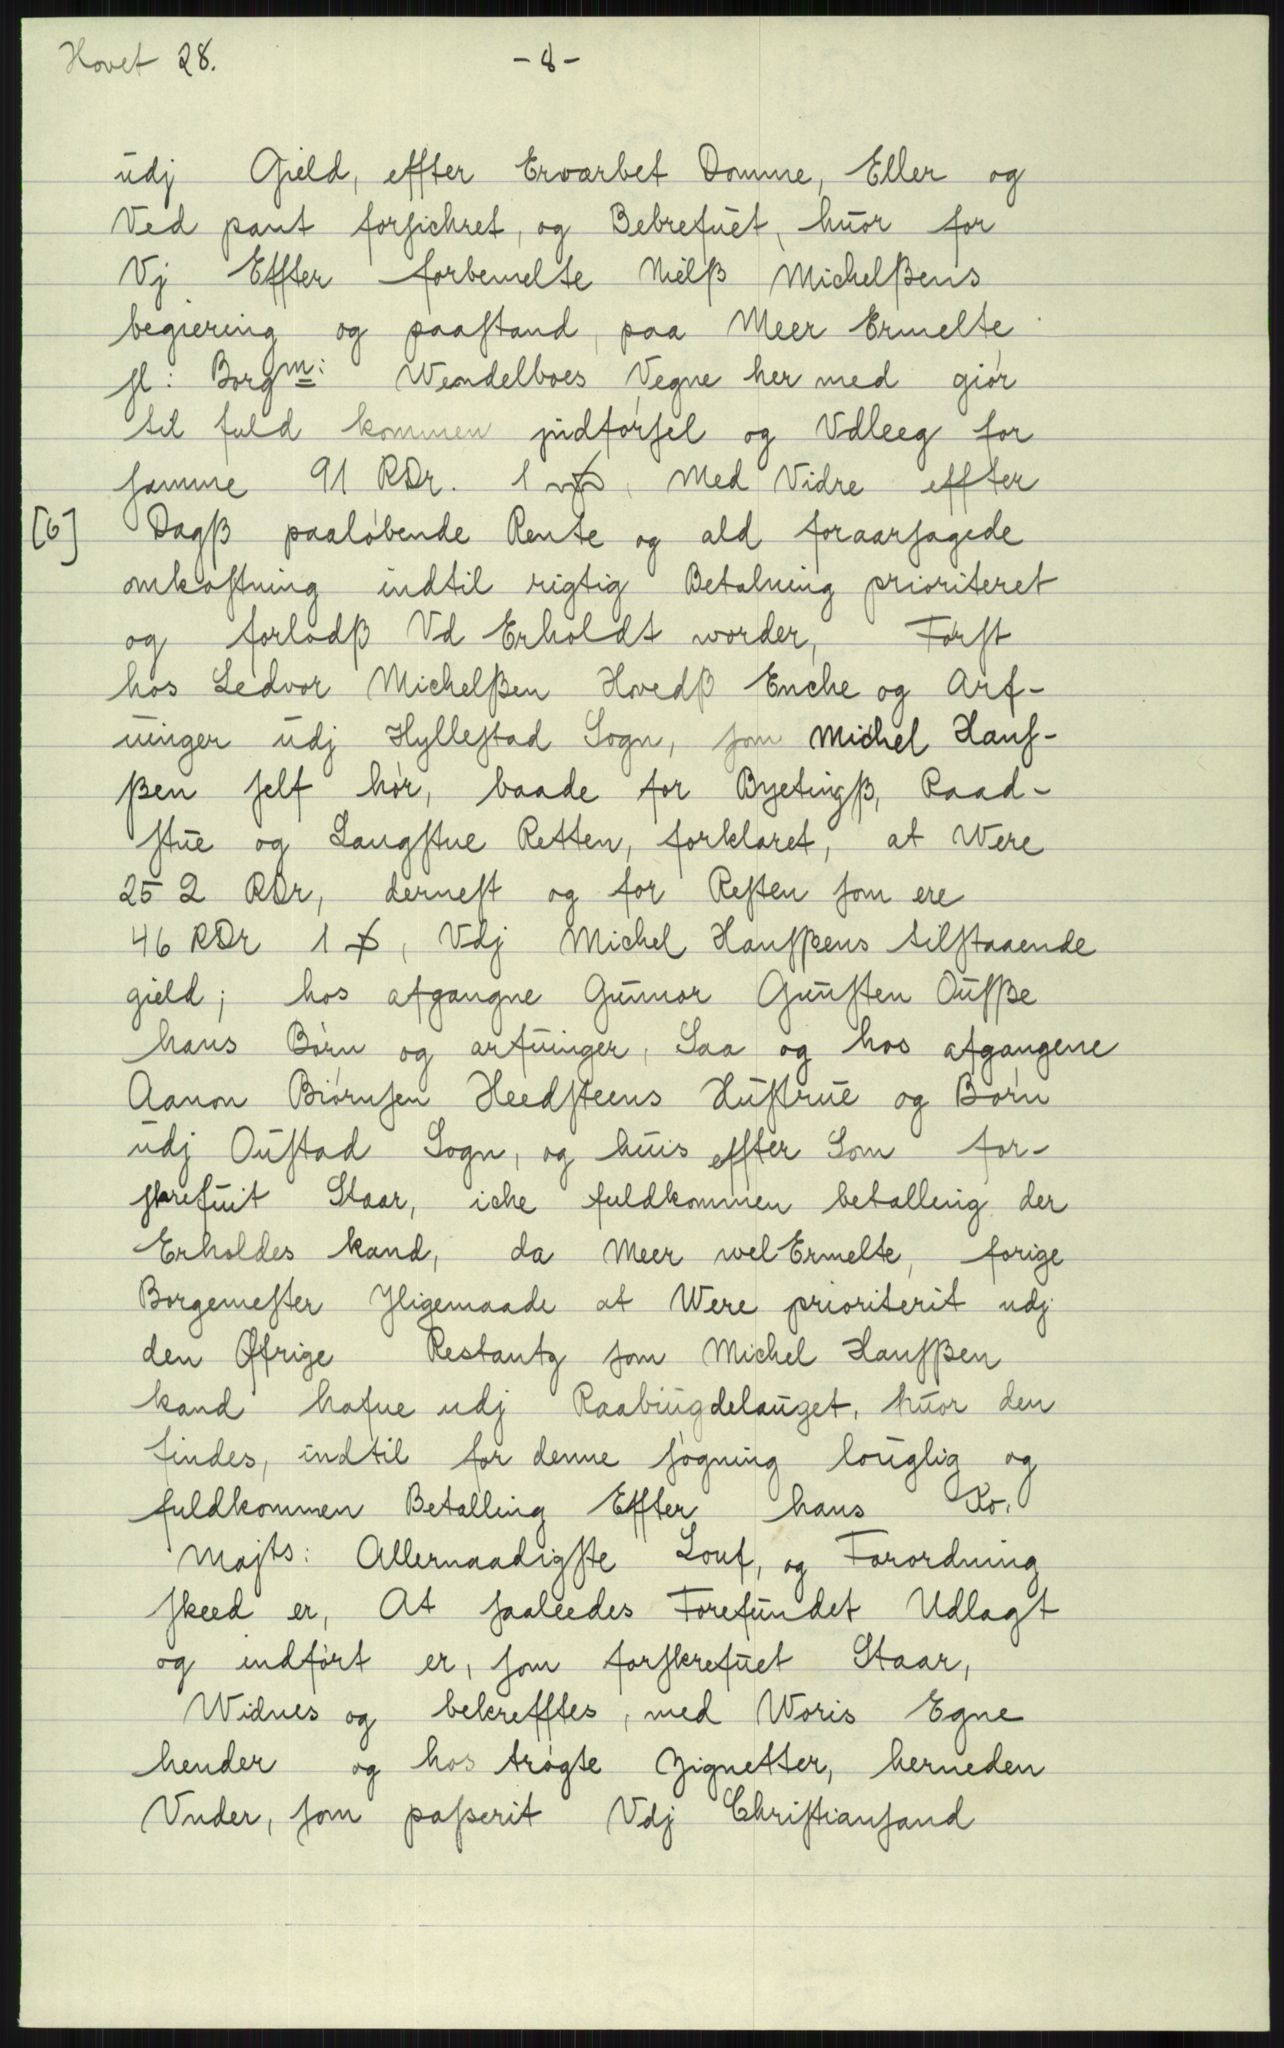 Hovet 28.
- 8 -
udj Gield, effter Erværbet Domme, Eller og
Ved pant forsichret, og Bebrefuet, huor for
Vj Effter forbemelte Nielß Michelßens
begiering og paastand, paa Meer Ermelte
sl: Borgm: Wendelboes Vegne her med giør
til fuld kommen jndførsel og Vdleeg for
samme 91 RDr. 1 , Med Vidre effter
[6] Dagß paaløbende Rente og ald foraarsagede
omkostning indtil rigtig Betalning prioriteret
og forlodß Vd Erholdt worder, Først
hos Ledvor Michelßen Hovedß Enche og Arf-
uinger udj Hyllestad Sogn, som Michel Hans-
ßen self hør, baade for Byetingß, Raad-
stue og Laugstue Retten, forklaret, at Were
25 2 RDr, dernest og for Resten som ere
46 RDr 1 , Vdj Michel Hansßens tilstaaende
gield; hos afgangne Gunnor Guusten Oufße
hans Børn og arfuinger, Saa og hos afgangene
Aanon Biørnsen Heedsteens Hustrue og Børn
udj Oustad Sogn, og huis effter Som for-
skrefuit Staar, iche fuldkommen betalling der
Erholdes kand, da Meer wel Ermelte, forige
Borgemester Jligemaade at Were prioriterit udj
den Øfrige Restantz som Michel Hansßen
kand hafue udj Raabiugdelauget, huor den
findes, indtil for denne søgning louglig og
fuldkommen Betalling Effter hans Ko.
Majts: Allernaadigste Louf, og Forordning
skeed er, At saaleedes Forefundet Udlagt
og indført er, som forskrefuet Staar,
Widnes og bekrefftes, med Woris Egne
hender og hos trøgte Zignetter, herneden
Vnder, som passerit Vdj Christiansand